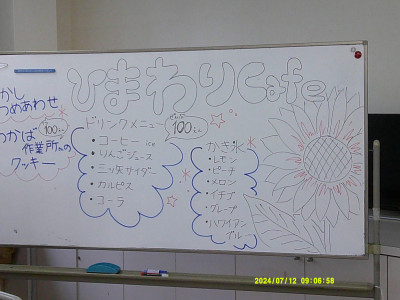 ひまわりCafe
かし
つめあわせ
100えん
わかば
作業所さんの
クッキー
ドリンクメニュー
100えん
・コーヒー
・りんごジュース
・三ツ矢サイダー
・カルピス
・コーラ
かき氷
・レモン
・ピーチ
・メロン
・イチゴ
・グレープ
・ハワイアン
ブルー
2024/07/12 09:06:58